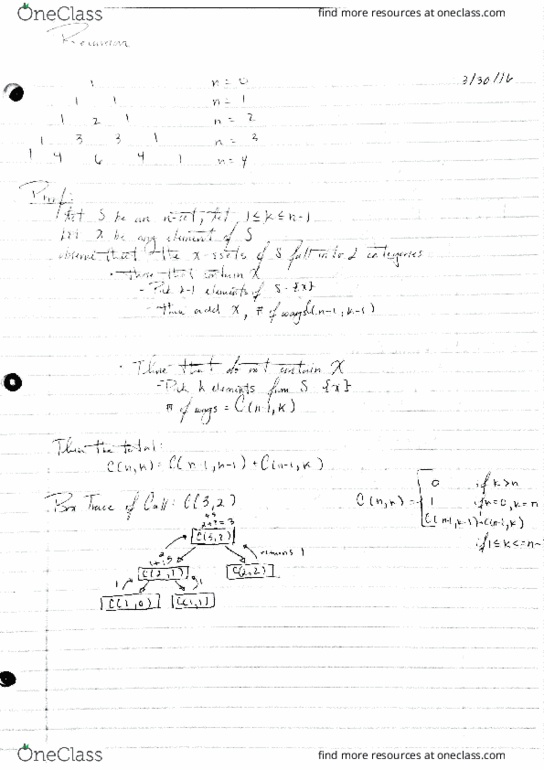 OneClass
find more resources at oneclass.com
Recursion
3/30/16
1 n = 0
1 1 n = 1
1 2 1 n = 2
1 3 3 1 n = 3
1 4 6 4 1 n = 4
Proof:
Let S be an n-set, let 1≤k≤n-1
Let X be any element of S
observe that the x-ssets of S fall into 2 categories
• those that contain X
- Pick k-1 elements of S - {x}
- then add X, # of ways C(n-1, k-1)
• Those that do not contain X
- Pick k elements from S - {x}
# of ways = C(n-1, k)
Then the total:
C(n, k) = C(n-1, n-1) + C(n-1, k)
Box Trace of Call: C(3,2)
C(n, k) =
0 if k>n
1 if k=0, k=n
C(n-1, k-1) + C(n-1, k)
if 1≤k<=n-
2+1=3
C(3,2)
returns 1
C(2,1)
C(2,2)
1
C(1,0)
C(1,1)
OneClass
find more resources at oneclass.com